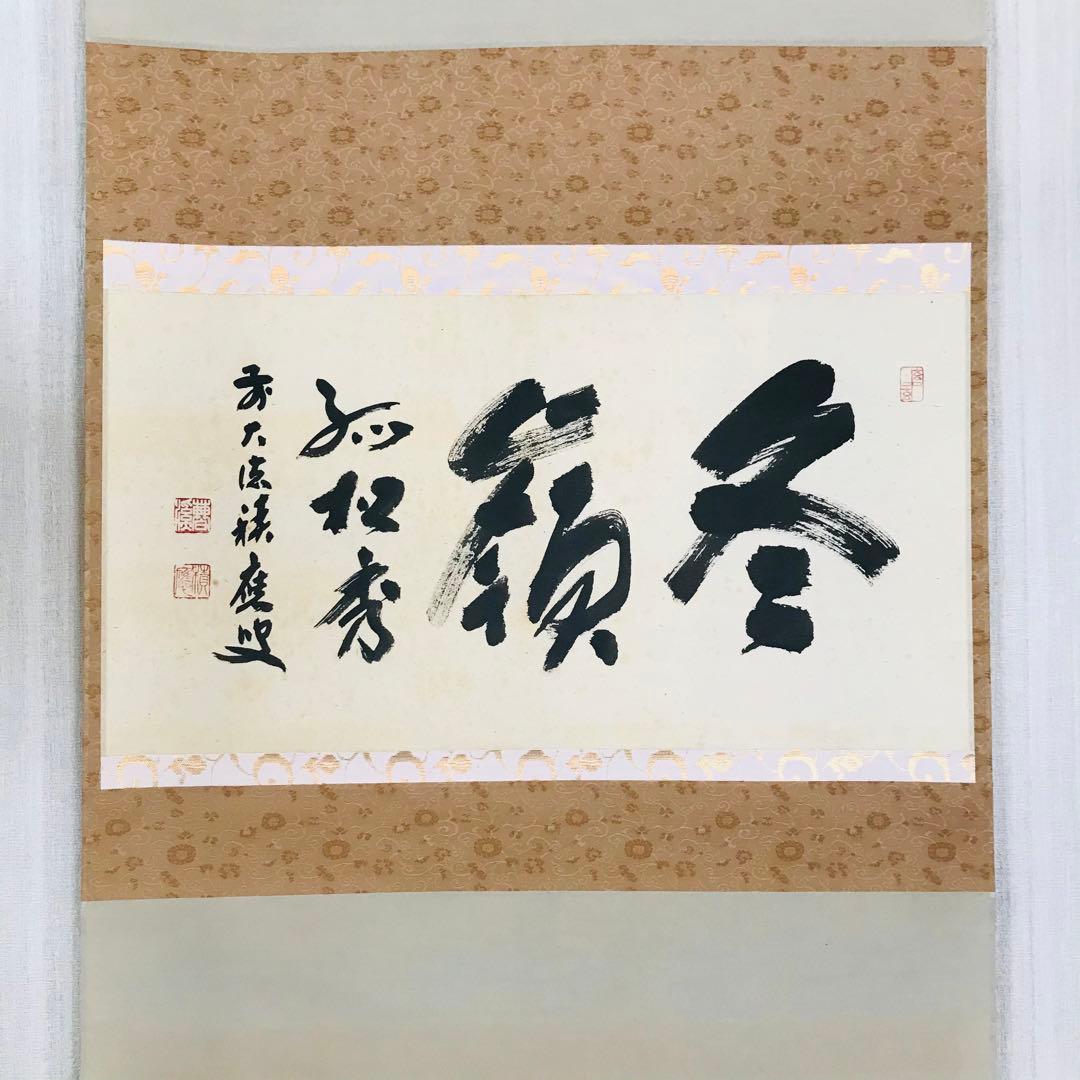 冬
嶺
孤松秀
前大徳積應叟